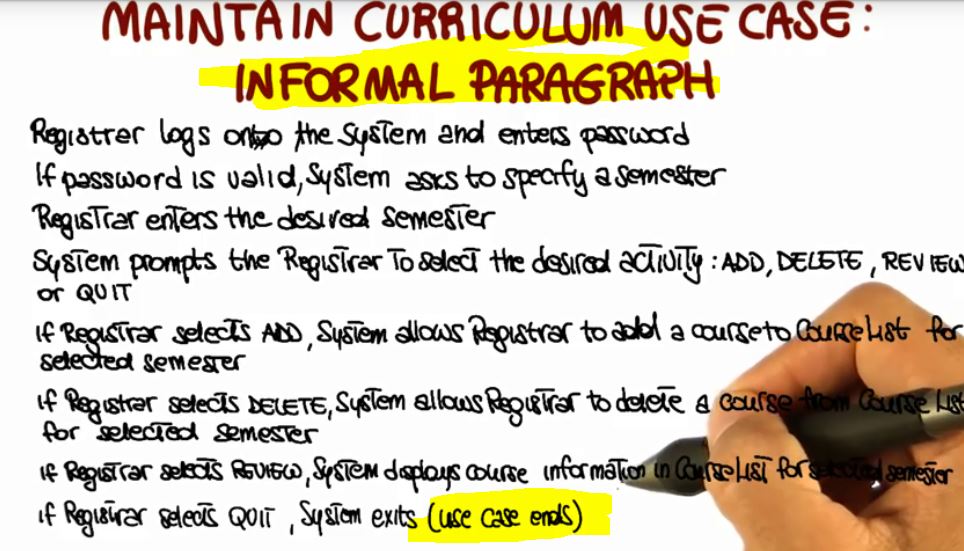 MAINTAIN CURRICULUM USE CASE:
INFORMAL PARAGRAPH
Registrar logs onto the System and enters password
If password is valid, System asks to specify a semester
Registrar enters the desired semester
System prompts the Registrar To select the desired activity: ADD, DELETE, REVIEW
or QUIT
if Registrar selects ADD, System allows Registrar to add a course to Course List for
selected semester
if Registrar selects DELETE, System allows Registrar to delete a course from Course List
for selected semester
if Registrar selects REVIEW, System displays course information in Course List for selected semester
if Registrar selects QUIT, System exits (use case ends)